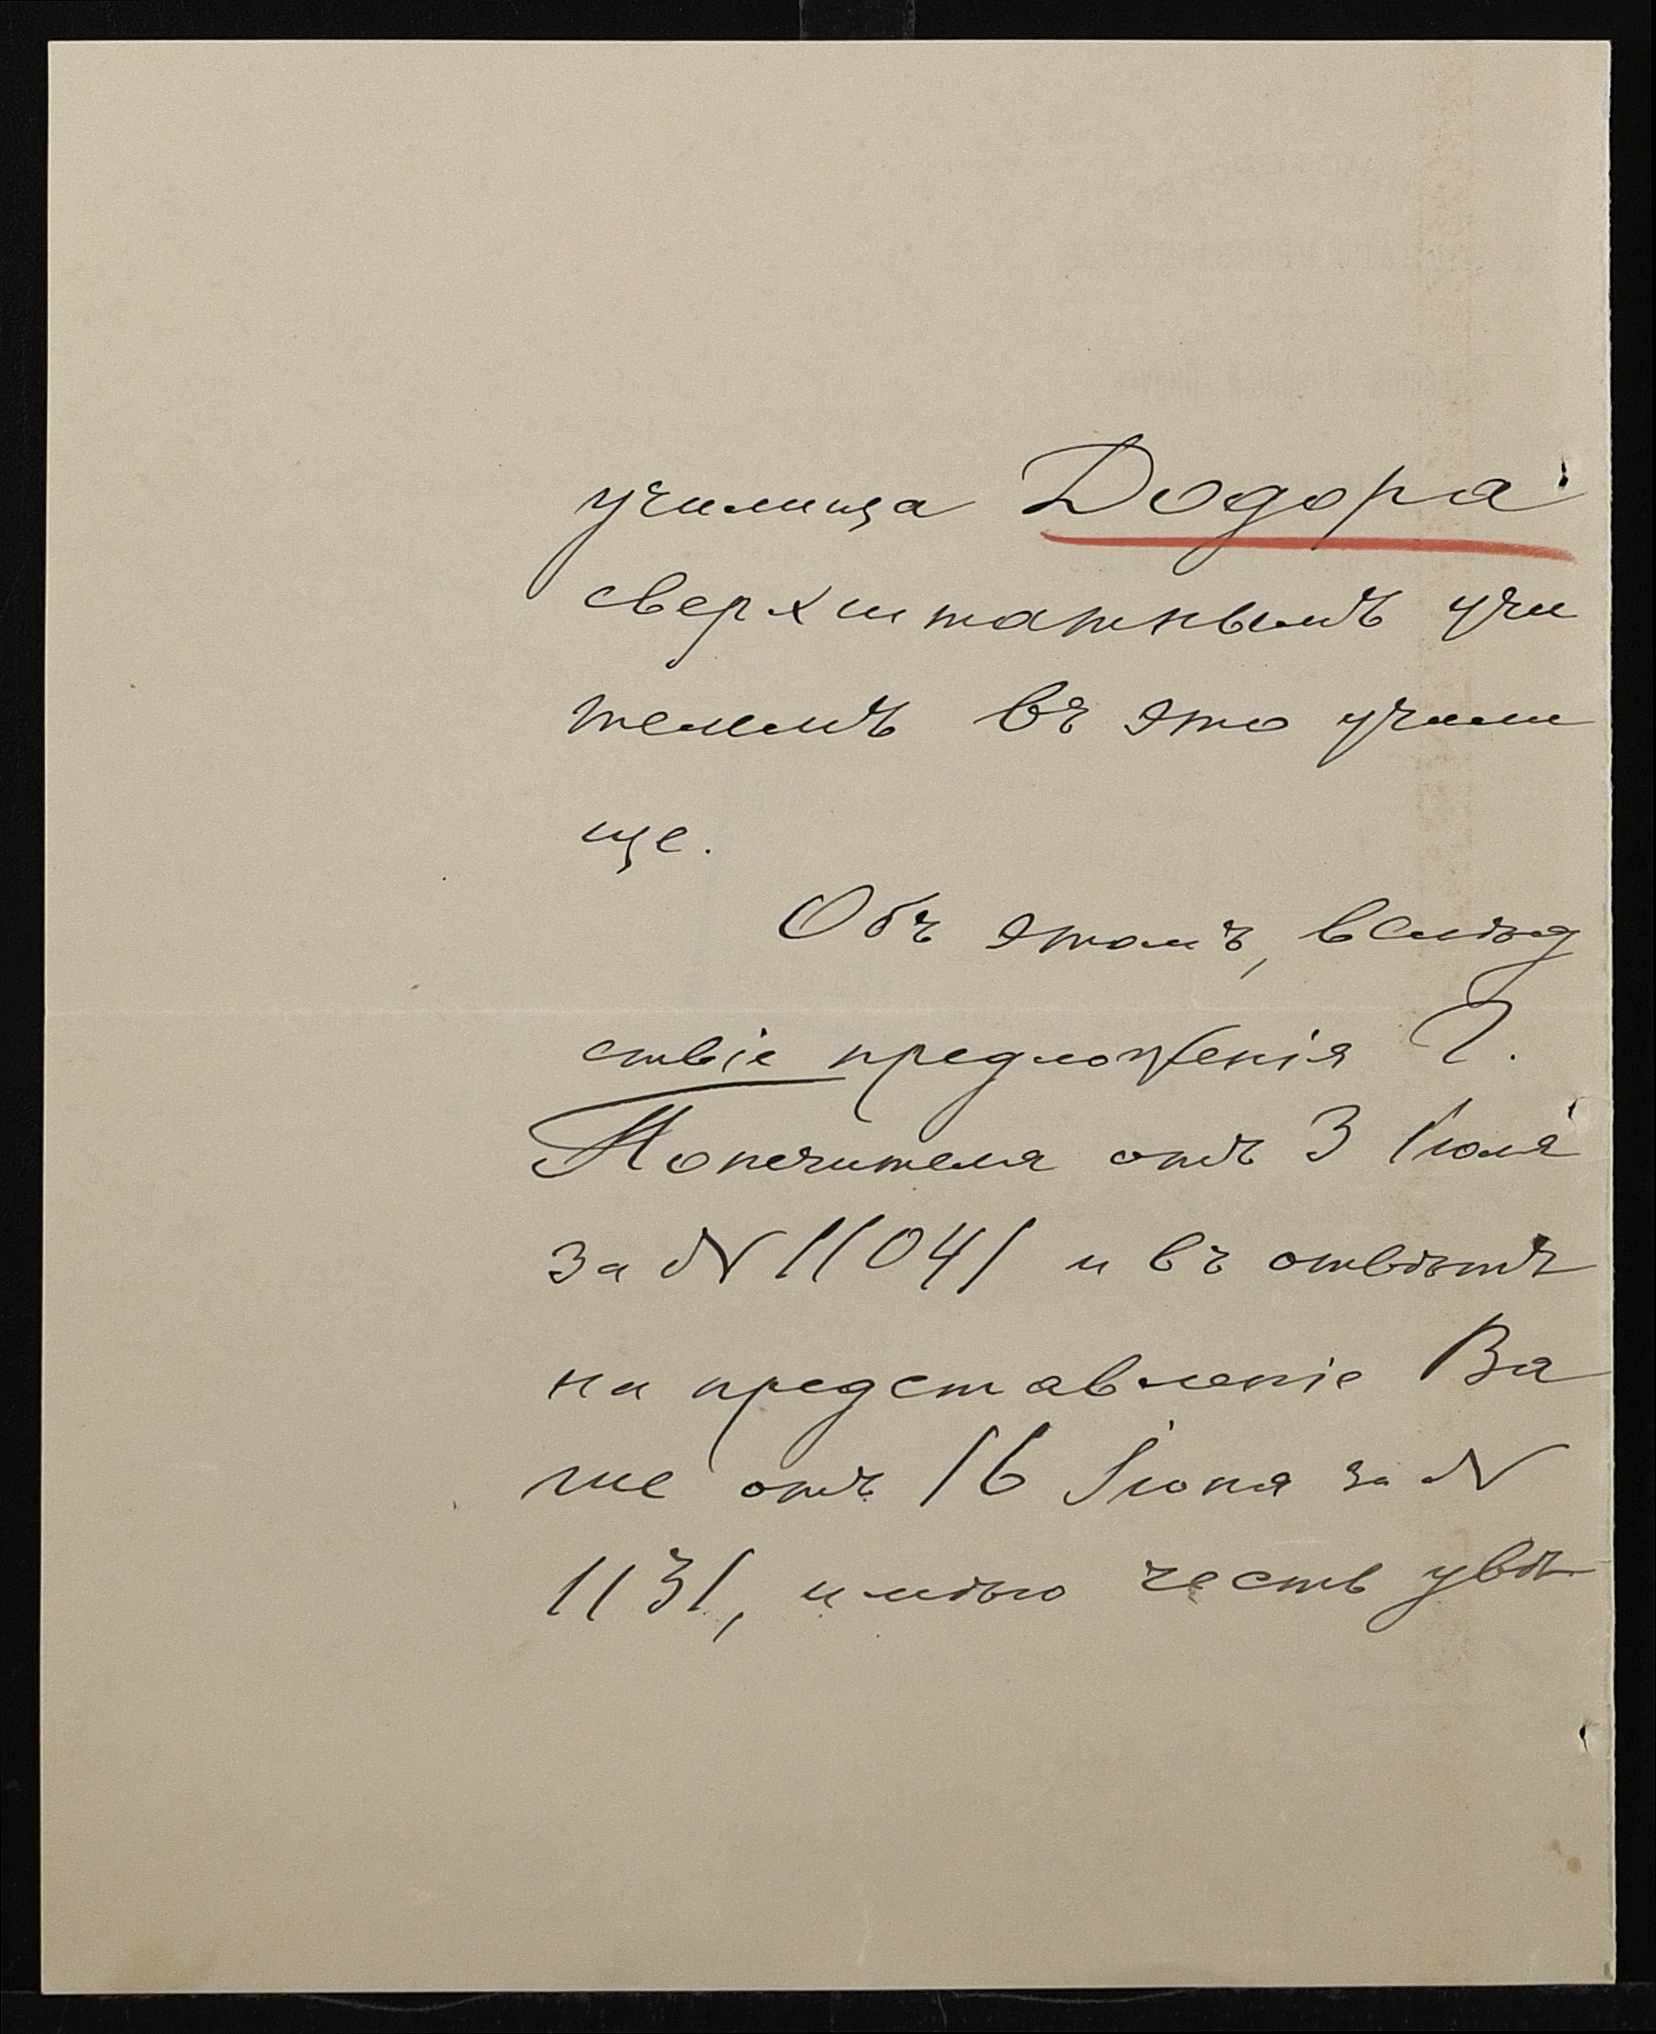 училища Додора
сверхштатнымъ учи
телемъ въ это учили
ще.
Объ этомъ, вслѣд
ствіе предложенія Г.
Попечителя отъ 3 Іюля
за № 11041 и въ отвѣтъ
на представленіе Ва
ше отъ 16 Іюня за №
1131, имѣю честь увѣ